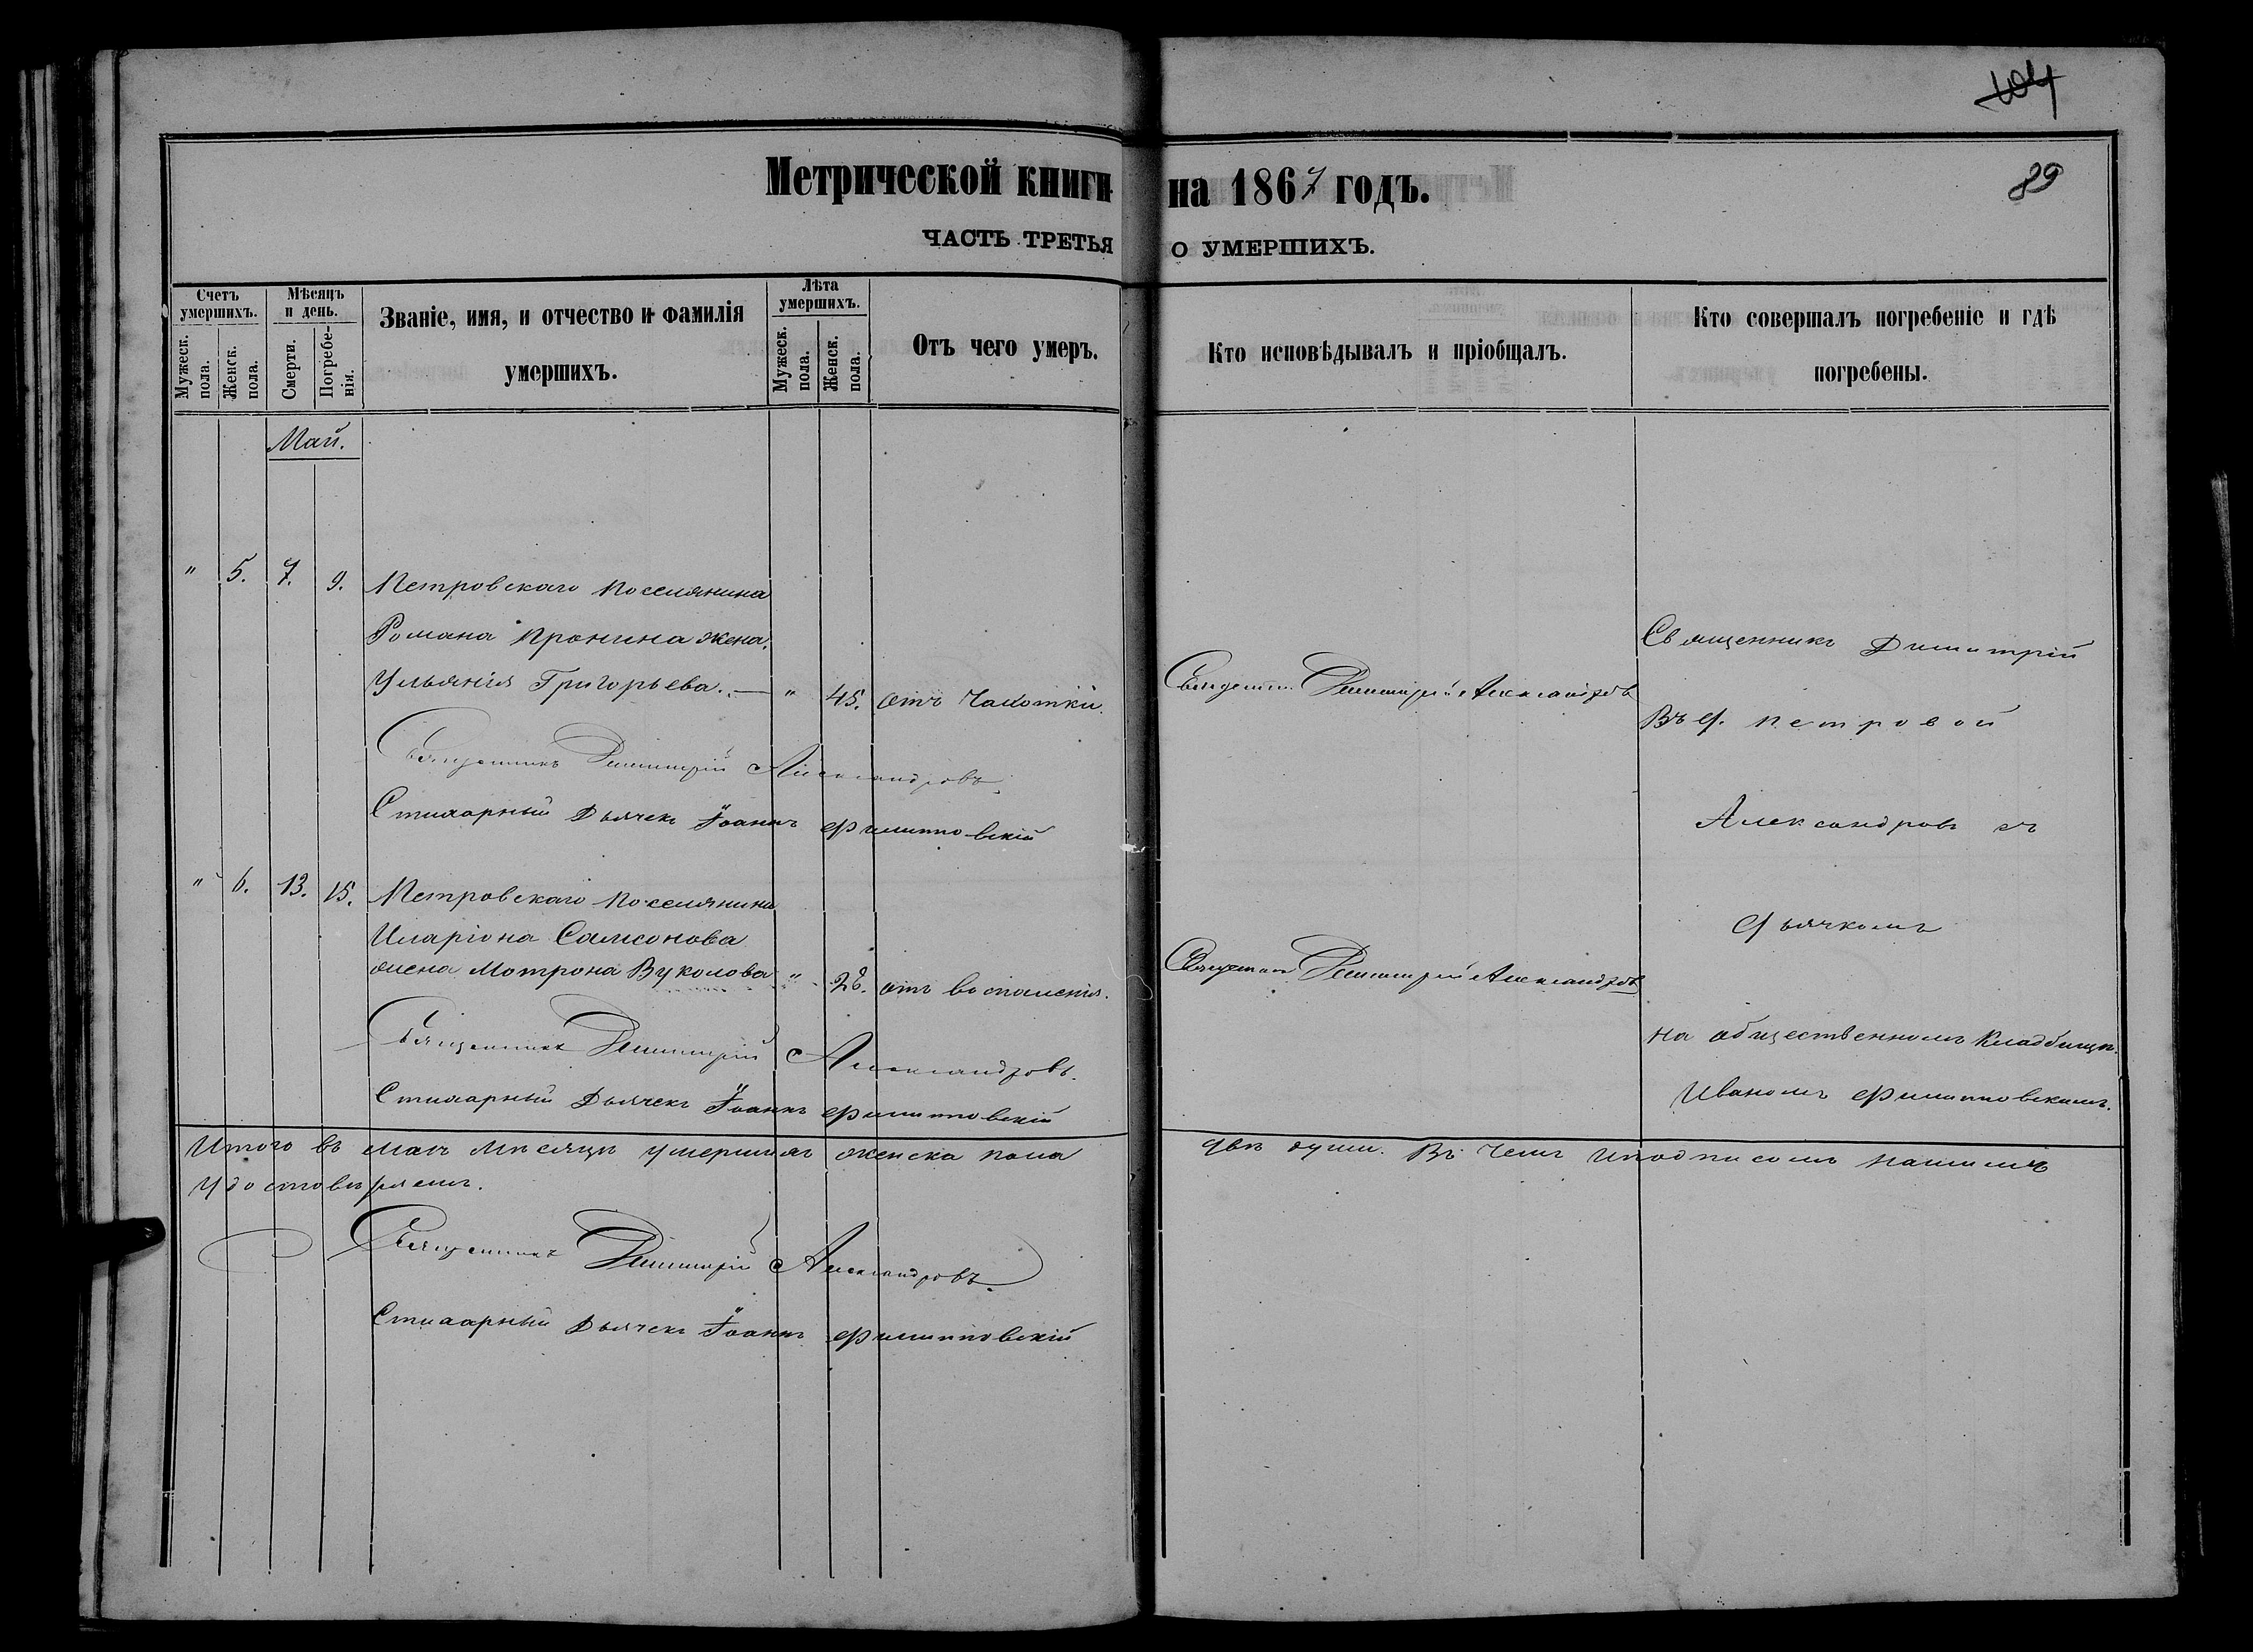 104
Метрической книги на 1867 годъ.
89
ЧАСТЬ ТРЕТЬЯ О УМЕРШИХЪ.
Счетъ умершихъ.
Мужеск. пола.
Женск. пола.
Мѣсяцъ и день.
Смерти.
Погребе-нія.
Званіе, имя, и отчество и фамилія
умершихъ.
Лѣта умершихъ.
Мужеск. пола.
Женск. пола.
Отъ чего умеръ.
Кто исповѣдывалъ и пріобщалъ.
Кто совершалъ погребеніе и гдѣ
погребены.
Май.
" 5. 7. 9. Петровскаго поселянина
Романа Пронина жена
Ульянія Григорьева. — " 45. отъ Чахотки.
Священникъ Димитрій Александровъ
Священникъ Димитрій Александровъ.
Стихарный Дьячекъ Іоаннъ Филипповскій
" 6. 13. 15. Петровскаго поселянина
Иларіона Самсонова
жена Мотрона Вуколова " 26. отъ воспаленія.
Священникъ Димитрій Александровъ
Священникъ Димитрій Александровъ.
Стихарный Дьячекъ Іоаннъ Филипповскій
Священникъ Димитрій
Въ д. Петровой
Александровъ съ
дьячкомъ
на общественномъ кладбищѣ.
Иваномъ Филипповскимъ.
Итого въ маѣ мѣсяцѣ умершихъ женска пола двѣ души. Въ чемъ и подписомъ нашимъ
удостовѣряемъ.
Священникъ Димитрій Александровъ.
Стихарный Дьячекъ Іоаннъ Филипповскій